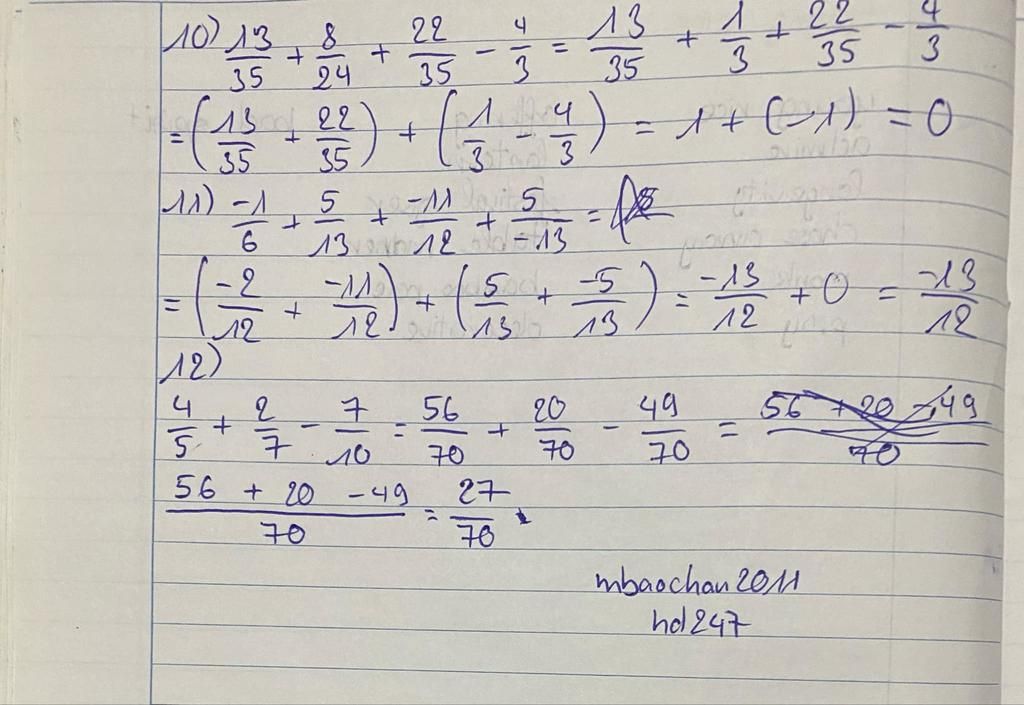 10) 13/35 + 8/24 + 22/35 - 4/3 = 13/35 + 1/3 + 22/35 - 4/3
= (13/35 + 22/35) + (1/3 - 4/3) = 1 + (-1) = 0
11) -1/6 + 5/13 + -11/12 + 5/-13 =
= (-2/12 + -11/12) + (5/13 + -5/13) = -13/12 + 0 = -13/12
12)
4/5 + 2/7 - 7/10 = 56/70 + 20/70 - 49/70 = 56 + 20 - 49/70
56 + 20 - 49/70 = 27/70.
mbaochan2011
hd247